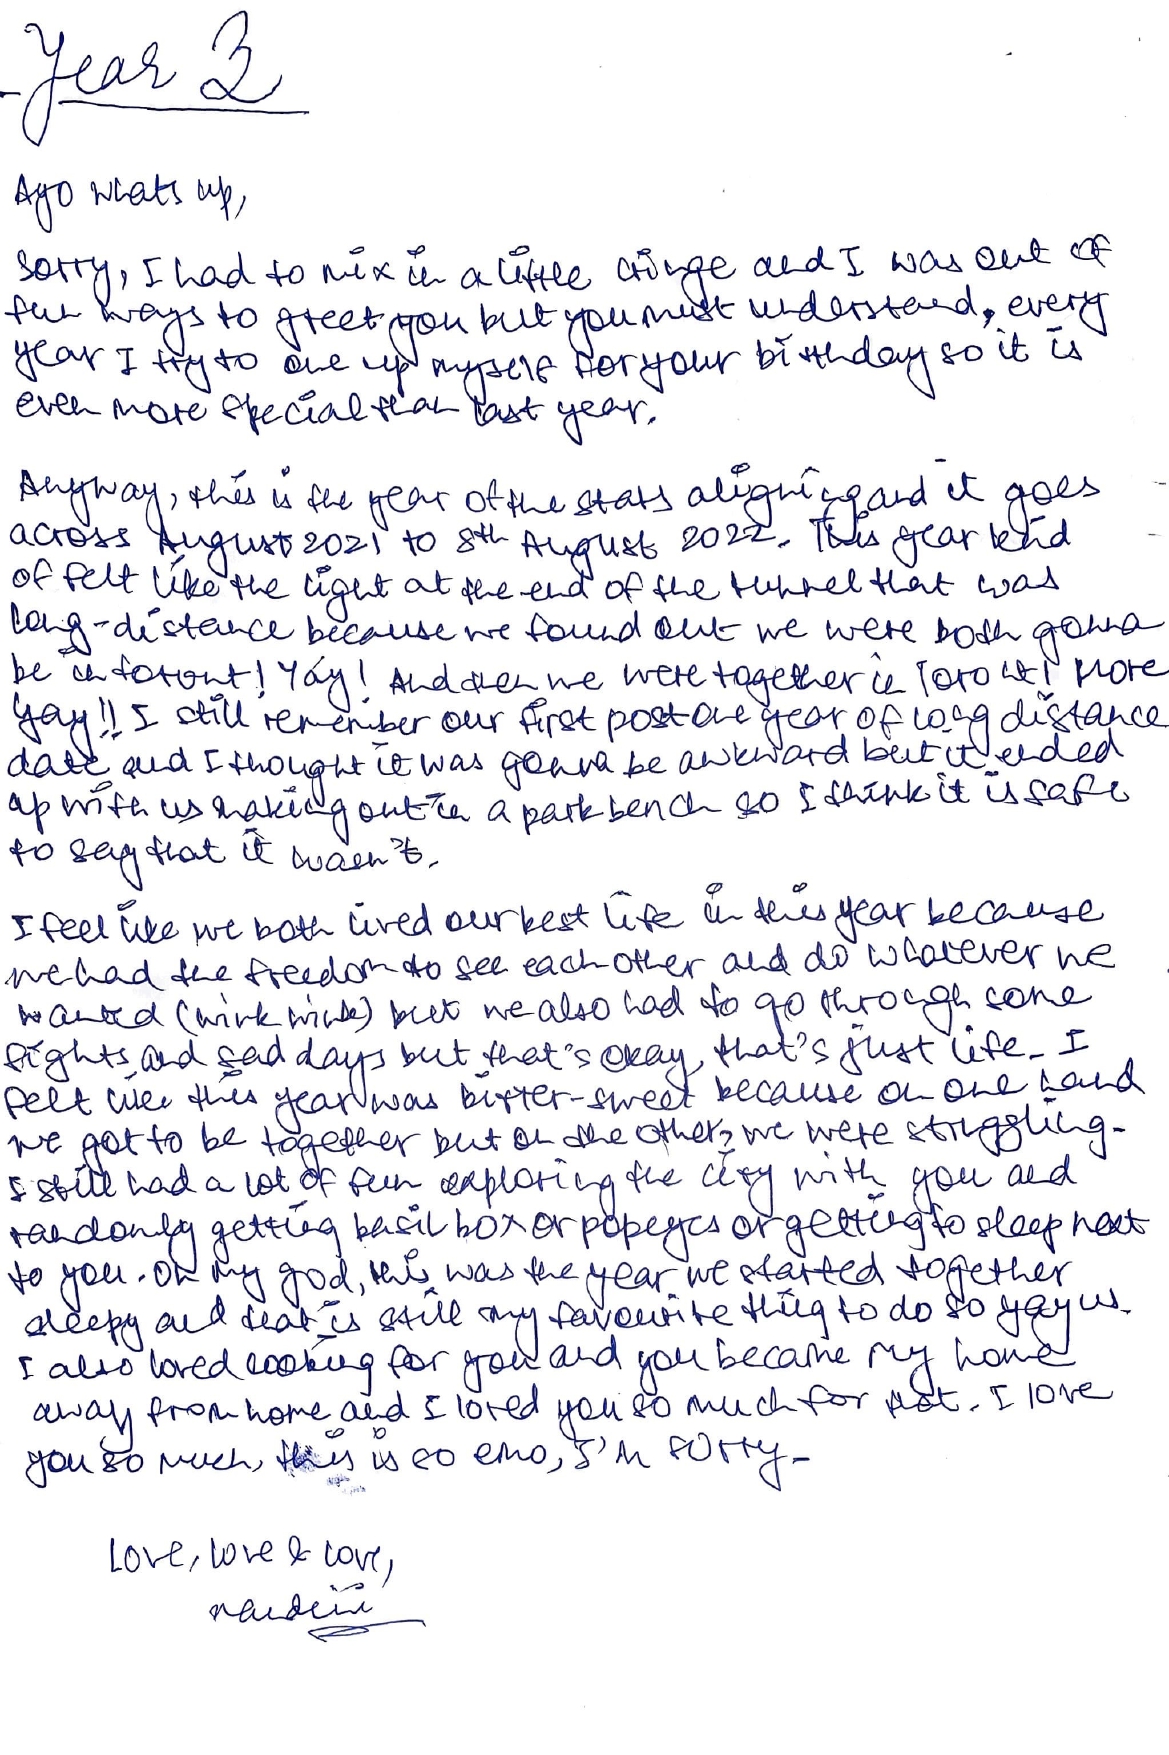 Year 3
Ayo whats up,
Sorry, I had to mix in a little cringe and I was out of
fun ways to greet you but you must understand, every
year I try to one up myself for your birthday so it is
even more special than last year.
Anyway, this is the year of the stars aligning and it goes
across August 2021 to 8th August 2022. This year kind
of felt like the light at the end of the tunnel that was
long-distance because we found out we were both gonna
be in toront! Yay! And then we were together in Toront! More
Yay!! I still remember our first post one year of long distance
date and I thought it was gonna be awkward but it ended
up with us making out in a park bench so I think it is safe
to say that it wasn't.
I feel like we both lived our best life in this year because
we had the freedom to see each other and do whatever we
wanted (wink wink) but we also had to go through some
fights and sad days but that's okay, that's just life. I
felt like this year was bitter-sweet because on one hand
we got to be together but on the other, we were struggling.
I still had a lot of fun exploring the city with you and
randomly getting basil box or popeyes or getting to sleep next
to you. Oh my god, this was the year we started together
sleepy and that is still my favourite thing to do so yay us.
I also loved cooking for you and you became my home
away from home and I loved you so much for that. I love
you so much, this is so emo, I'm sorry.
Love, love & love,
nandini